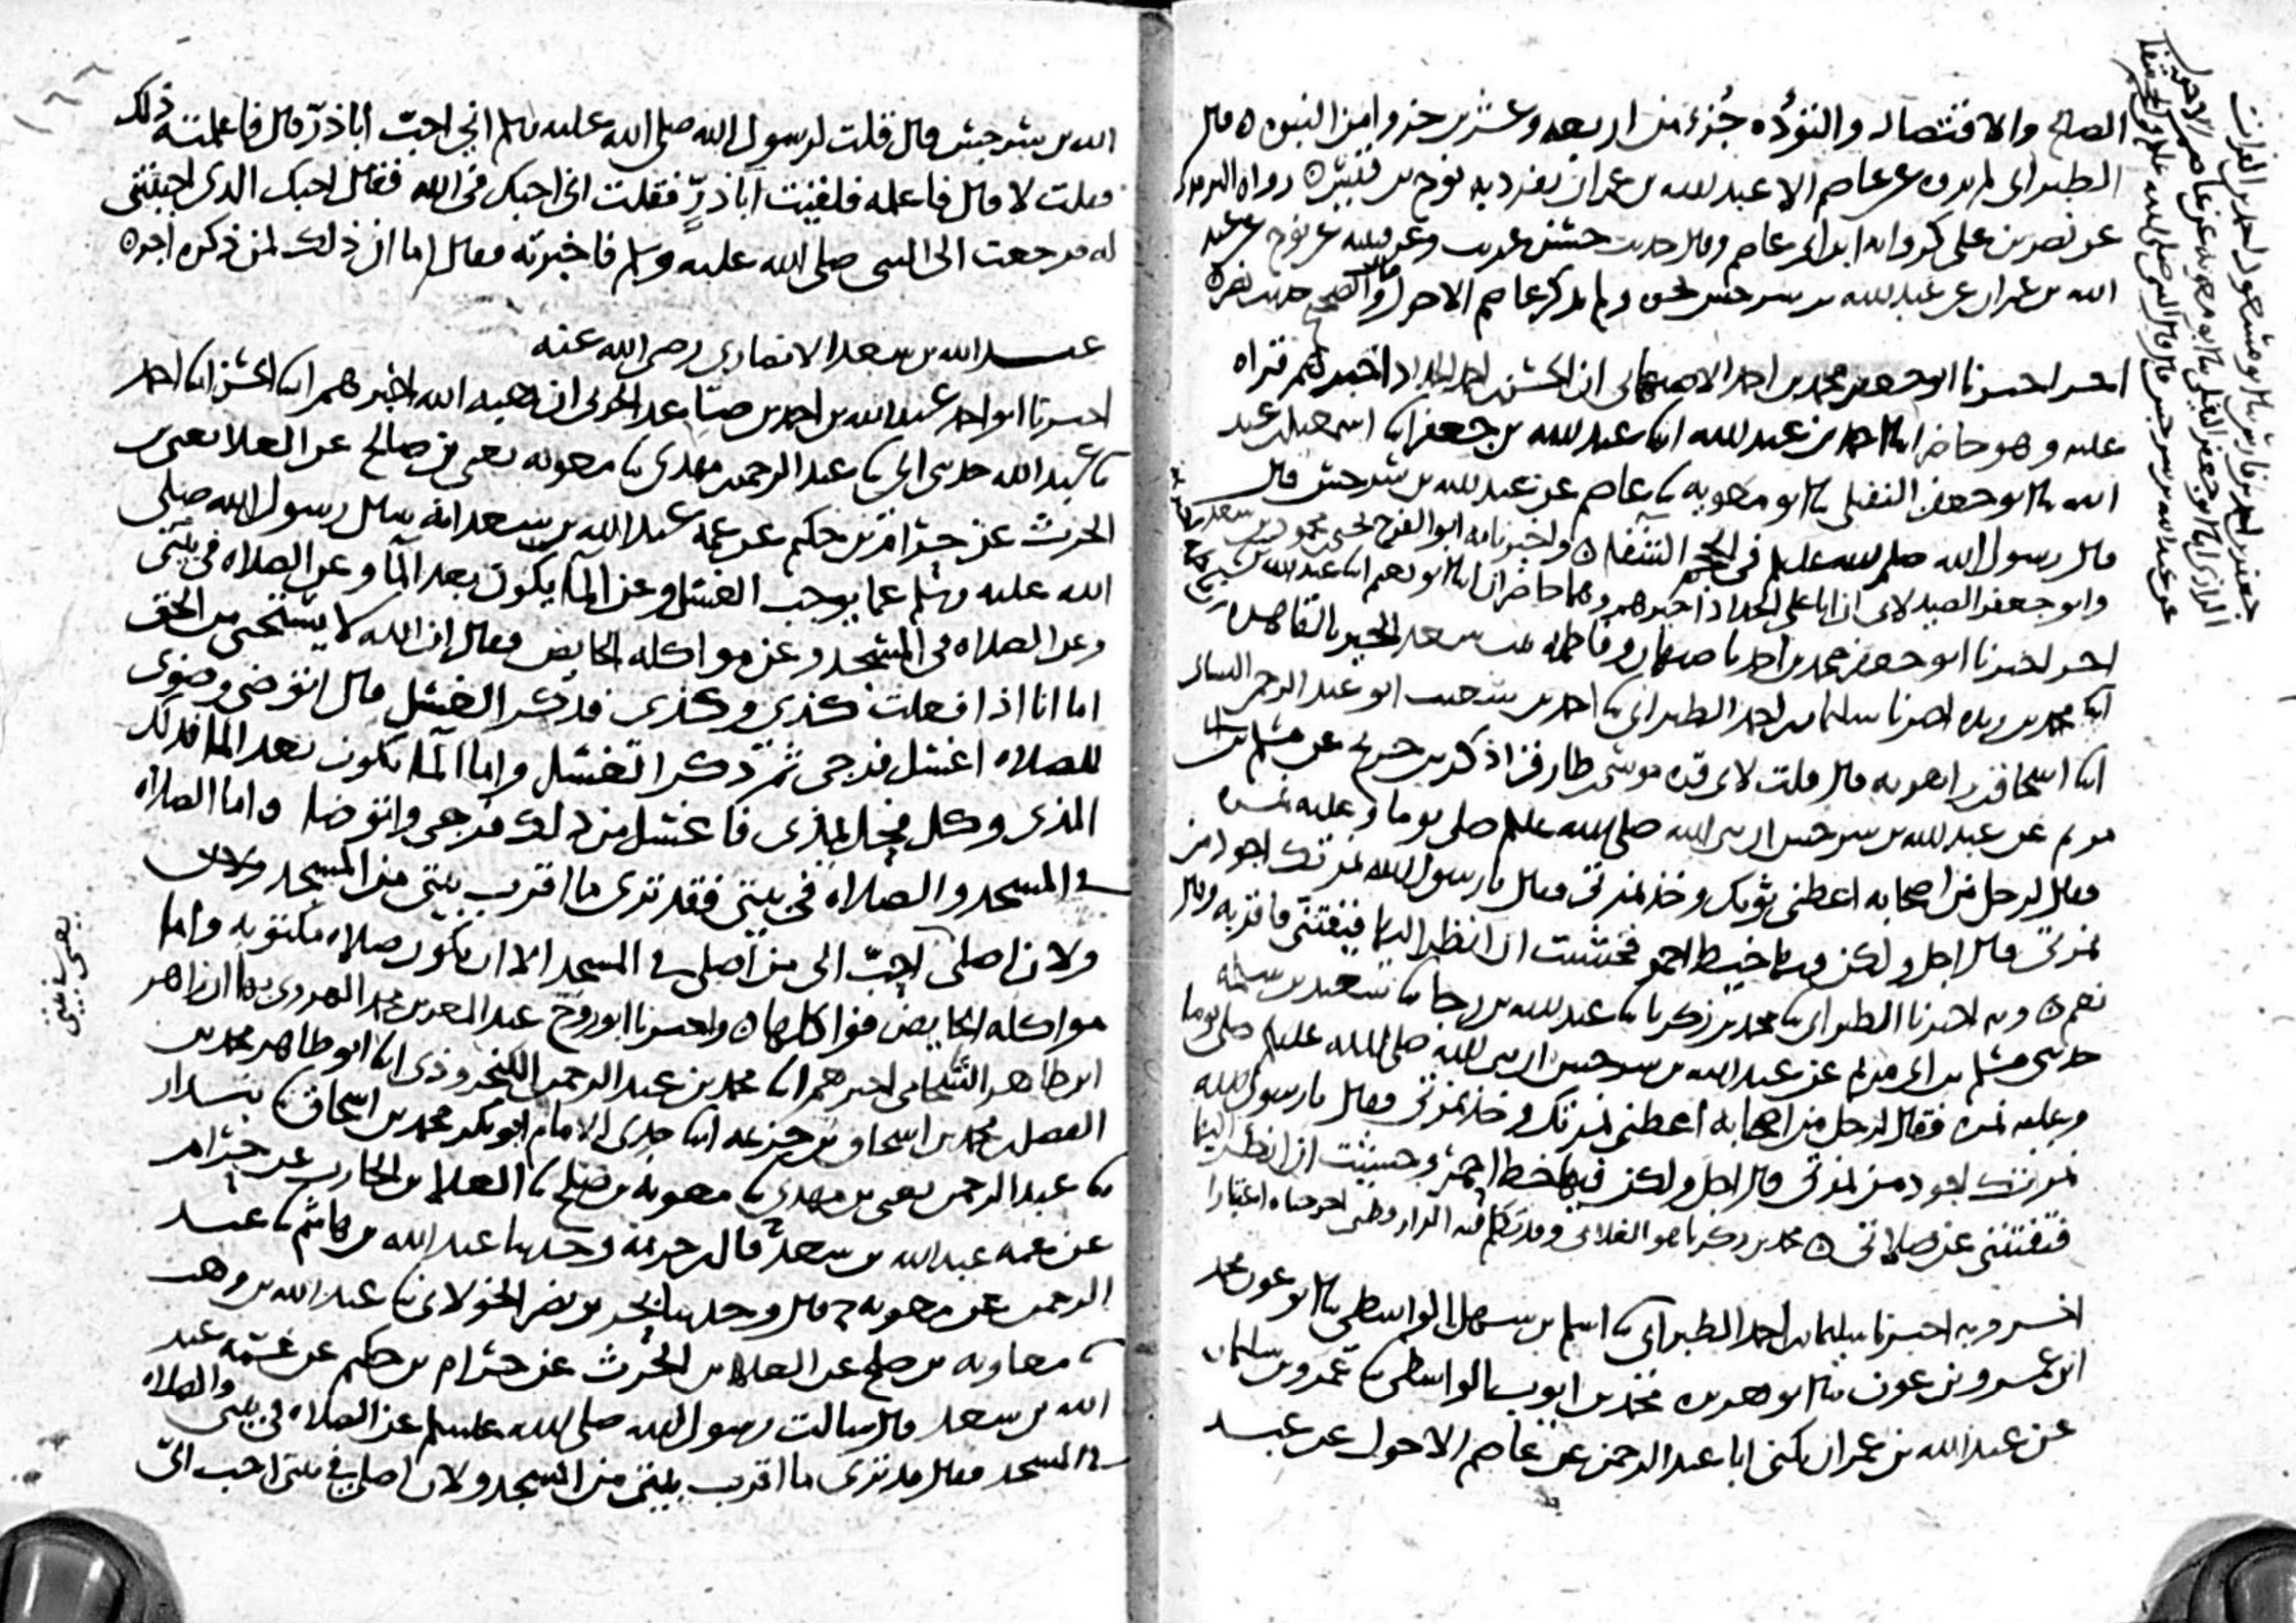 الصالح والاقتصاد والتؤده جُزء من اربعه وعشرين جزوا من النبوه ه قال
الطبراني لم يروه عن عاصم الا عبد الله بن عمران تفرد به نوح بن قيس ه رواه الترمذي
عن نصر بن علي كروايه ابن ابي عاصم وقال حديث حسن غريب وعن قتيبه عن نوح عن عبد
الله بن عمران عن عبد الله بن سرجس نحوه ولم يذكر عاصم الاحول قال والصحيح حديث نصر ه
اخر اخبرنا ابو جعفر محمد بن احمد الاصبهاني ان الحسن بن احمد الحداد اخبرهم قراه
عليه وهو حاضر ابنا احمد بن عبد الله ابنا عبد الله بن جعفر ابنا اسمعيل بن عبد
الله ثنا ابو جعفر النفيلي ثنا ابو معويه ثنا عاصم عن عبد الله بن سرجس قال
قال رسول الله صلى الله عليه وسلم في الحجم الشفا ه واخبرنا به ابو الفتوح محمود بن
وابو جعفر الصيدلاني ان ابا علي الحداد اخبرهم وهما حاضران ابنا ابو نعيم ابنا عبد الله
اخر اخبرنا ابو جعفر محمد بن احمد باصبهان وفاطمه بنت سعد الخير بالقاهره
ابنا محمد بن ريذه اخبرنا سليمان بن احمد الطبراني ثنا احمد بن شعيب ابو عبد الرحمن النسائي
ابنا اسحاق بن راهويه قال قلت لابي قره موسى بن طارق اذكر ابن جريج عن مسلم بن ابي
مريم عن عبد الله بن سرجس ان نبي الله صلى الله عليه وسلم صلى يوما وعليه نمره
فقال لرجل من اصحابه اعطني ثوبك وخذ نمرتي فقال يا رسول الله نمرتك اجود من
نمرتي قال اجل ولكن فيها خيط احمر فخشيت ان انظر اليها فيفتنني فاقر به وقال
نعم ه وبه اخبرنا الطبراني ثنا محمد بن زكريا ثنا عبد الله بن رجا ثنا سعيد بن سلمه
حدثني مسلم بن ابي مريم عن عبد الله بن سرجس ان نبي الله صلى الله عليه وسلم صلى يوما
وعليه نمره فقال لرجل من اصحابه اعطني نمرتك وخذ نمرتي فقال يا رسول الله
نمرتك اجود من نمرتي قال اجل ولكن فيها خيط احمر وخشيت ان انظر اليها
فتفتنني عن صلاتي ه محمد بن زكريا هو الغلابي وقد تكلم فيه
اخر وبه اخبرنا سليمان بن احمد الطبراني ثنا اسلم بن سهل الواسطي ثنا ابو عون محمد
ابن عمرو بن عون ثنا ابو هريره محمد بن ايوب الواسطي ثنا عمرو بن سليمان
عن عبد الله بن عمران يكنى ابا عبد الرحمن عن عاصم الاحول عن عبد
عن عبد الله بن سرجس قال قال النبي صلى الله عليه وسلم في الحجم شفا
الله بن سرجس قال قلت لرسول الله صلى الله عليه وسلم اني احبّ ابا ذرّ قال فاعلمته ذلك
فقلت لا قال فاعلمه فلقيت ابا ذرٍّ فقلت اني احبك في الله فقال احبك الذي احببتني
له فرجعت الى النبي صلى الله عليه وسلم فاخبرته فقال اما ان ذلك لمن ذكره اجر ه
عبد الله بن سعد الانصاري رضي الله عنه
اخبرنا ابو احمد عبد الله بن احمد بن الحربي ان هبه الله اخبرهم ابنا الحسن ابنا احمد
ثنا عبد الله حدثني ابي ثنا عبد الرحمن بن مهدي ثنا معويه يعني بن صالح عن العلا يعني بن
الحرث عن حرام بن حكيم عن عمه عبد الله بن سعد انه سال رسول الله صلى
الله عليه وسلم عما يوجب الغسل وعن الماء يكون بعد الماء وعن الصلاه في بيتي
وعن الصلاه في المسجد وعن مواكله الحايض فقال ان الله لا يستحيي من الحق
اما انا اذا فعلت كذى وكذى فذكر الغسل قال اتوضى وضوى
للصلاه اغسل فرجي ثم ذكر الغسل واما الماء يكون بعد الماء فذلك
المذى وكل فحل يمذى فاغسل من ذلك فرجي واتوضا واما الصلاه
في المسجد والصلاه في بيتي فقد ترى ما اقرب بيتي من المسجد ولان
ولان اصلي احبّ الي من اصلي في المسجد الا ان تكون صلاه مكتوبه واما
مواكله الحايض فواكلها ه واخبرنا ابو روح عبد المعز بن محمد الهروي بها ان زاهر
ابن طاهر الشحامي اخبرهم ابنا محمد بن عبد الرحمن الكنجروذي ابنا ابو طاهر محمد بن
الفضل بن محمد بن اسحاق بن خزيمه ابنا جدي الامام ابو بكر محمد بن اسحاق ثنا بندار
ثنا عبد الرحمن يعني بن مهدي ثنا معويه بن صلح ثنا العلا بن الحارث عن حرام
عن عمه عبد الله بن سعد ح قال بن خزيمه وحدثنا عبد الله بن هاشم ثنا عبد
الرحمن عن معويه ح قال وحدثنا بحر بن نصر الخولاني ثنا عبد الله بن وهب
ثنا معاويه بن صلح عن العلا بن الحرث عن حرام بن حكيم عن عمه عبد
الله بن سعد قال سالت رسول الله صلى الله عليه وسلم عن الصلاه في بيتي والصلاه
في المسجد فقال قد ترى ما اقرب بيتي من المسجد ولان اصلي في بيتي احب اليّ